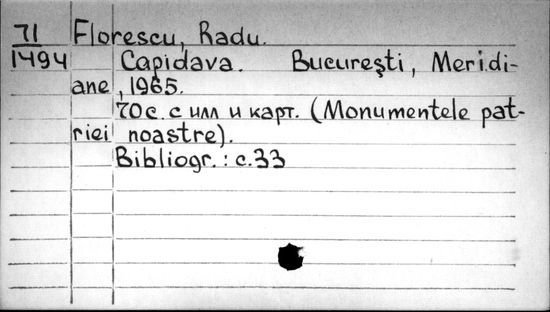 71 Florescu, Radu.
1494 Capidava. Bucureşti, Meridi-
ane, 1965.
70с. с илл и карт. (Monumentele pat-
riei noastre).
Bibliogr.: с.33